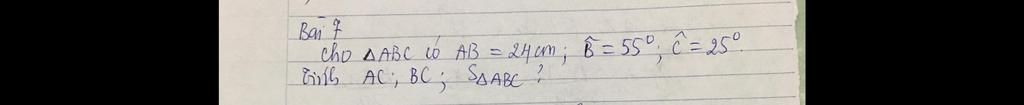 Bài 7
cho △ABC có AB = 24cm; B̂ = 55°; Ĉ = 25°.
Tính AC; BC; S△ABC ?